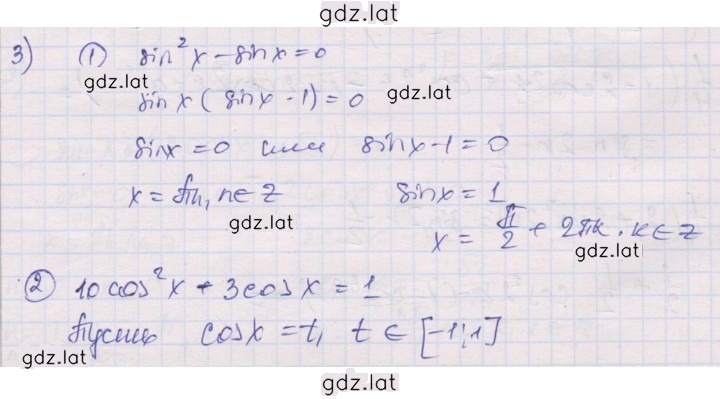 gdz.lat
3) ① sin²x - sinx = 0
gdz.lat
sinx ( sinx - 1) = 0 gdz.lat
sinx = 0 или sinx - 1 = 0
x = πn, n ∈ Z sinx = 1
gdz.lat
x = π/2 + 2πk, k ∈ Z
gdz.lat
② 10cos²x + 3cosx = 1
Пусть cosx = t, t ∈ [-1;1]
gdz.lat
gdz.lat